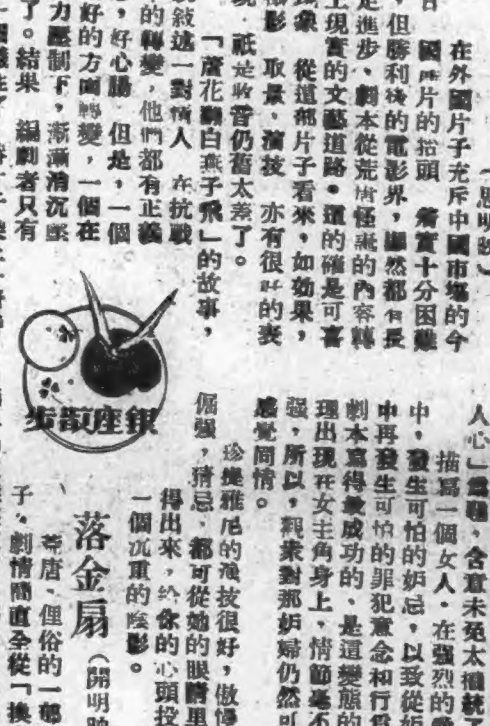 （思明映）
在外國片子充斥中國市場的今
日 國產片的抬頭 着實十分困難
，但勝利後的電影界，顯然都有長
足進步，劇本從荒唐怪誕的內容轉
上現實的文藝道路。這的確是可喜
現象 從這部片子看來，如效果，
攝影 取景，演技 亦有很好的表
現，祇是收音仍舊太差了。
「蘆花翻白燕子飛」的故事，
敘述一對情人 在抗戰
的轉變，他們都有正義
，好心腸 但是，一個
好的方面轉變，一個在
力壓制下，漸漸消沉墜
了。結果 編劇者只有
銀座韵步
人心」，含意未免太攏統了
描寫一個女人，在強烈的
中，發生可怕的妒忌，以致從妒
中再發生可怕的罪犯意念和行為
劇本寫得最成功的，是這變態的
理出現在女主角身上，情節毫不
强，所以，觀衆對那妒婦仍然可
感覺同情。
珍妮雅尼的演技很好，傲慢
倔强，猜忌，都可從她的眼睛里
得出來，给你的心頭投
一個沉重的陰影。
落金扇（開明映
荒唐，俚俗的一部
子，劇情簡直全從「換